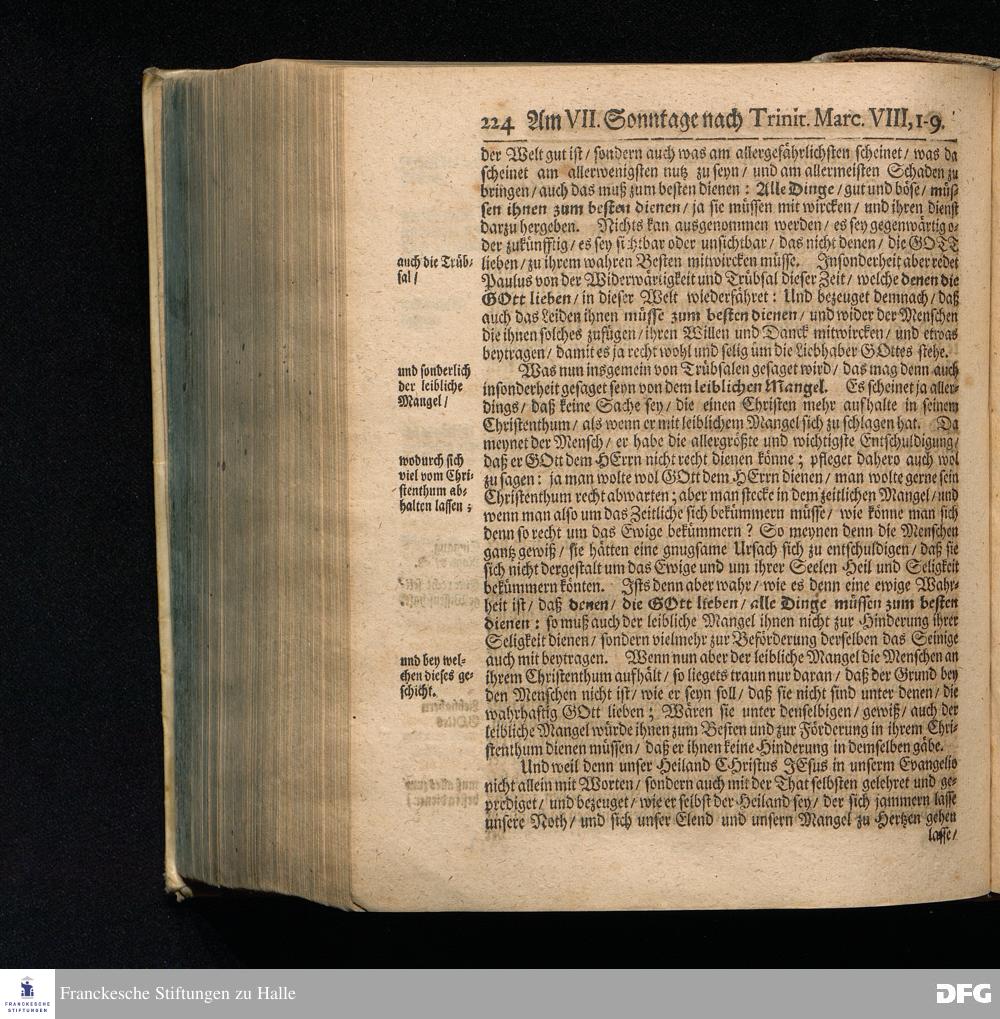 224 Am VII. Sonntage nach Trinit. Marc. VIII, 1-9.
der Welt gut ist / sondern auch was am allergefährlichsten scheinet / was da
scheinet am allerwenigsten nutz zu seyn / und am allermeisten Schaden zu
bringen / auch das muß zum besten dienen : Alle Dinge / gut und böse / müs-
sen ihnen zum besten dienen / ja sie müssen mit wircken / und ihren dienst
darzu hergeben. Nichts kan ausgenommen werden / es sey gegenwärtig o-
der zukünfftig / es sey sichtbar oder unsichtbar / das nicht denen / die GOTT
lieben / zu ihrem wahren Besten mitwircken müsse. Insonderheit aber redet
Paulus von der Widerwärtigkeit und Trübsal dieser Zeit / welche denen die
GOtt lieben / in dieser Welt wiederfähret : Und bezeuget demnach / daß
auch das Leiden ihnen müsse zum besten dienen / und wider der Menschen
die ihnen solches zufügen / ihren Willen und Danck mitwircken / und etwas
beytragen / damit es ja recht wohl und selig üm die Liebhaber GOttes stehe.
auch die Trüb-
sal /
Was nun insgemein von Trübsalen gesaget wird / das mag denn auch
insonderheit gesaget seyn von dem leiblichen Mangel. Es scheinet ja aller-
dings / daß keine Sache sey / die einen Christen mehr aufhalte in seinem
Christenthum / als wenn er mit leiblichem Mangel sich zu schlagen hat. Da
meynet der Mensch / er habe die allergrößte und wichtigste Entschuldigung /
daß er GOtt dem HErrn nicht recht dienen könne ; pfleget dahero auch wol
zu sagen : ja man wolte wol GOtt dem HErrn dienen / man wolte gerne sein
Christenthum recht abwarten ; aber man stecke in dem zeitlichen Mangel / und
wenn man also um das Zeitliche sich bekümmern müsse / wie könne man sich
denn so recht um das Ewige bekümmern ? So meynen denn die Menschen
gantz gewiß / sie hätten eine gnugsame Ursach sich zu entschuldigen / daß sie
sich nicht dergestalt um das Ewige und um ihrer Seelen Heil und Seligkeit
bekümmern könten. Ists denn aber wahr / wie es denn eine ewige Wahr-
heit ist / daß denen / die GOtt lieben / alle Dinge müssen zum besten
dienen : so muß auch der leibliche Mangel ihnen nicht zur Hinderung ihrer
Seligkeit dienen / sondern vielmehr zur Beförderung derselben das Seinige
auch mit beytragen. Wenn nun aber der leibliche Mangel die Menschen an
ihrem Christenthum aufhält / so liegets traun nur daran / daß der Grund bey
den Menschen nicht ist / wie er seyn soll / daß sie nicht sind unter denen / die
wahrhaftig GOtt lieben ; Wären sie unter denselbigen / gewiß / auch der
leibliche Mangel würde ihnen zum Besten und zur Förderung in ihrem Chri-
stenthum dienen müssen / daß er ihnen keine Hinderung in demselben gäbe.
und sonderlich
der leibliche
Mangel /
wodurch sich
viel vom Chri-
stenthum ab-
halten lassen ;
und bey wel-
chen dieses ge-
schicht.
Und weil denn unser Heiland CHristus JEsus in unserm Evangelio
nicht allein mit Worten / sondern auch mit der That selbsten gelehret und ge-
prediget / und bezeuget / wie er selbst der Heiland sey / der sich jammern lasse
unsere Noth / und sich unser Elend und unsern Mangel zu Hertzen gehen
lasse /
FRANCKESCHE
STIFTUNGEN
Franckesche Stiftungen zu Halle
DFG